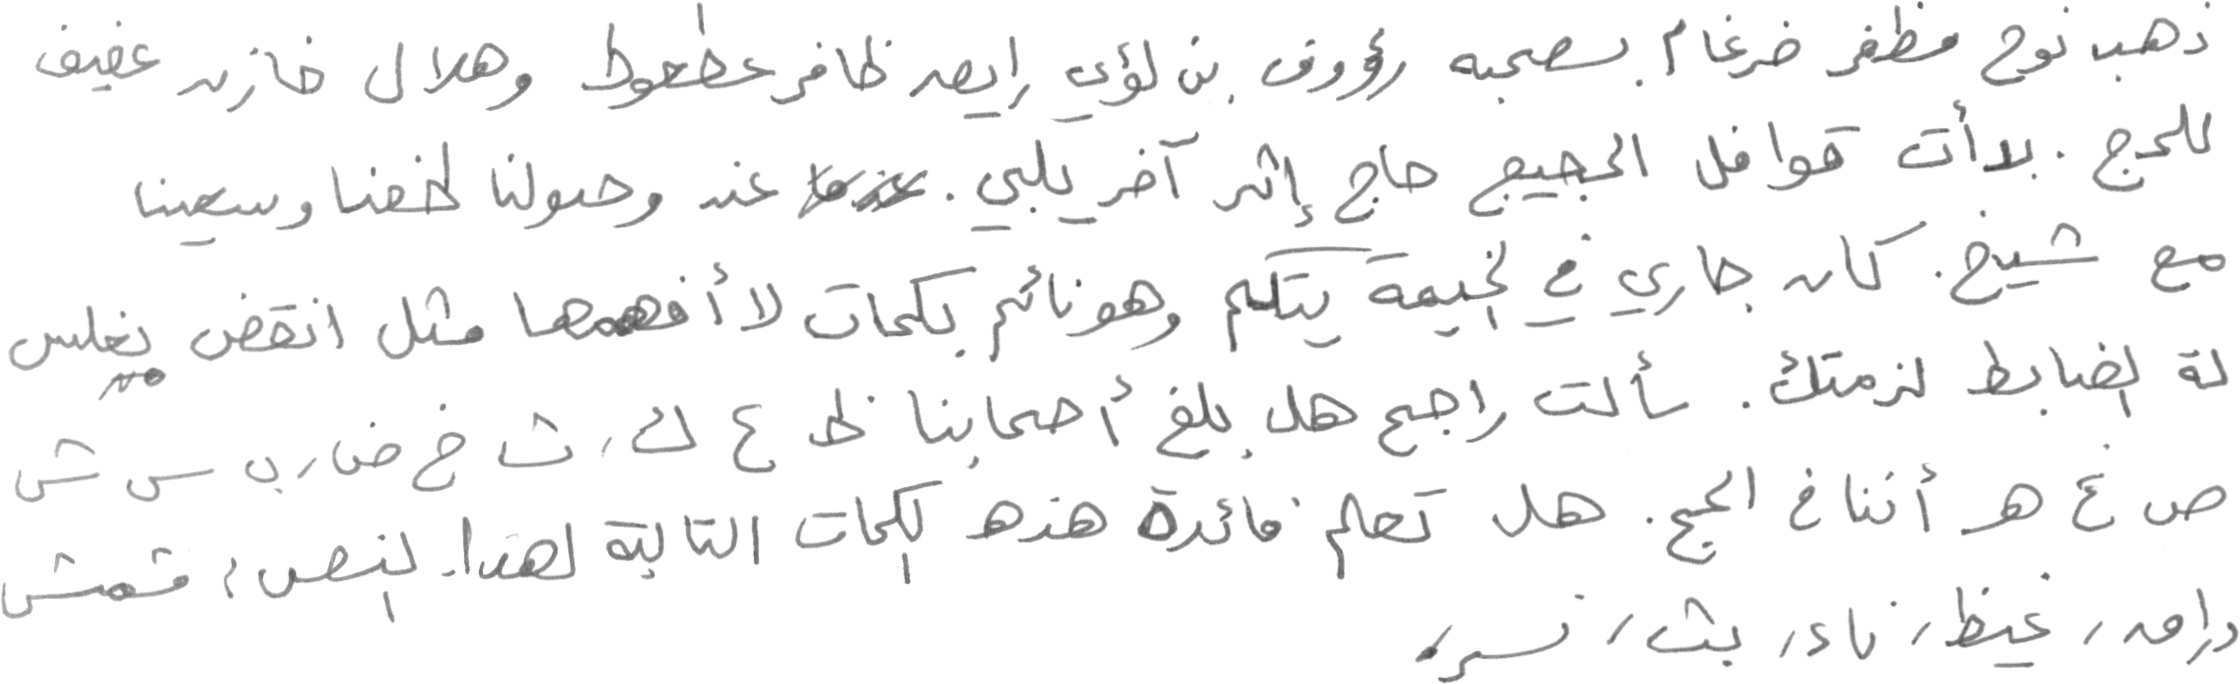 ذهب نوح مظفر ضرغام بصحبه رؤوف بن لؤي رايص ظافر عطعوط وهلال خازن عفيف
للحج. بدأت قوافل الحجيج حاج إثر آخر يلبي. عند وصولنا طفنا وسعينا
مع شيخ. كان جاري في لخيمة يتكلم وهو نائم بكلمات لا أفهمها مثل انقض يغلس
لة الضابط لزمتك. سألت راجح هل بلغ أصحابنا ظ ع ك، ث خ ض، ب س ش
ص غ ه أننا في الحج. هل تعلم فائدة هذه الكلمات التالية لهذا النص؛ قمش
رامه، غيظ، ناء، بث، نسر،